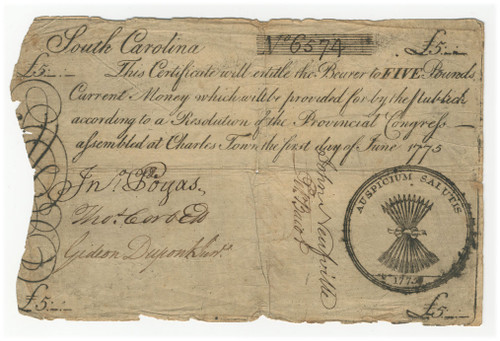 South Carolina No 6574 £5
£5 This Certificate will entitle the Bearer to FIVE Pounds
Current Money which will be provided for by the Publick
according to a Resolution of the Provincial Congress
assembled at Charles Town the first day of June 1775
Jno. Poyas
Thos. Corbett
Gideon Dupont Junr.
AUSPICIUM SALUTIS
1775
£5 £5